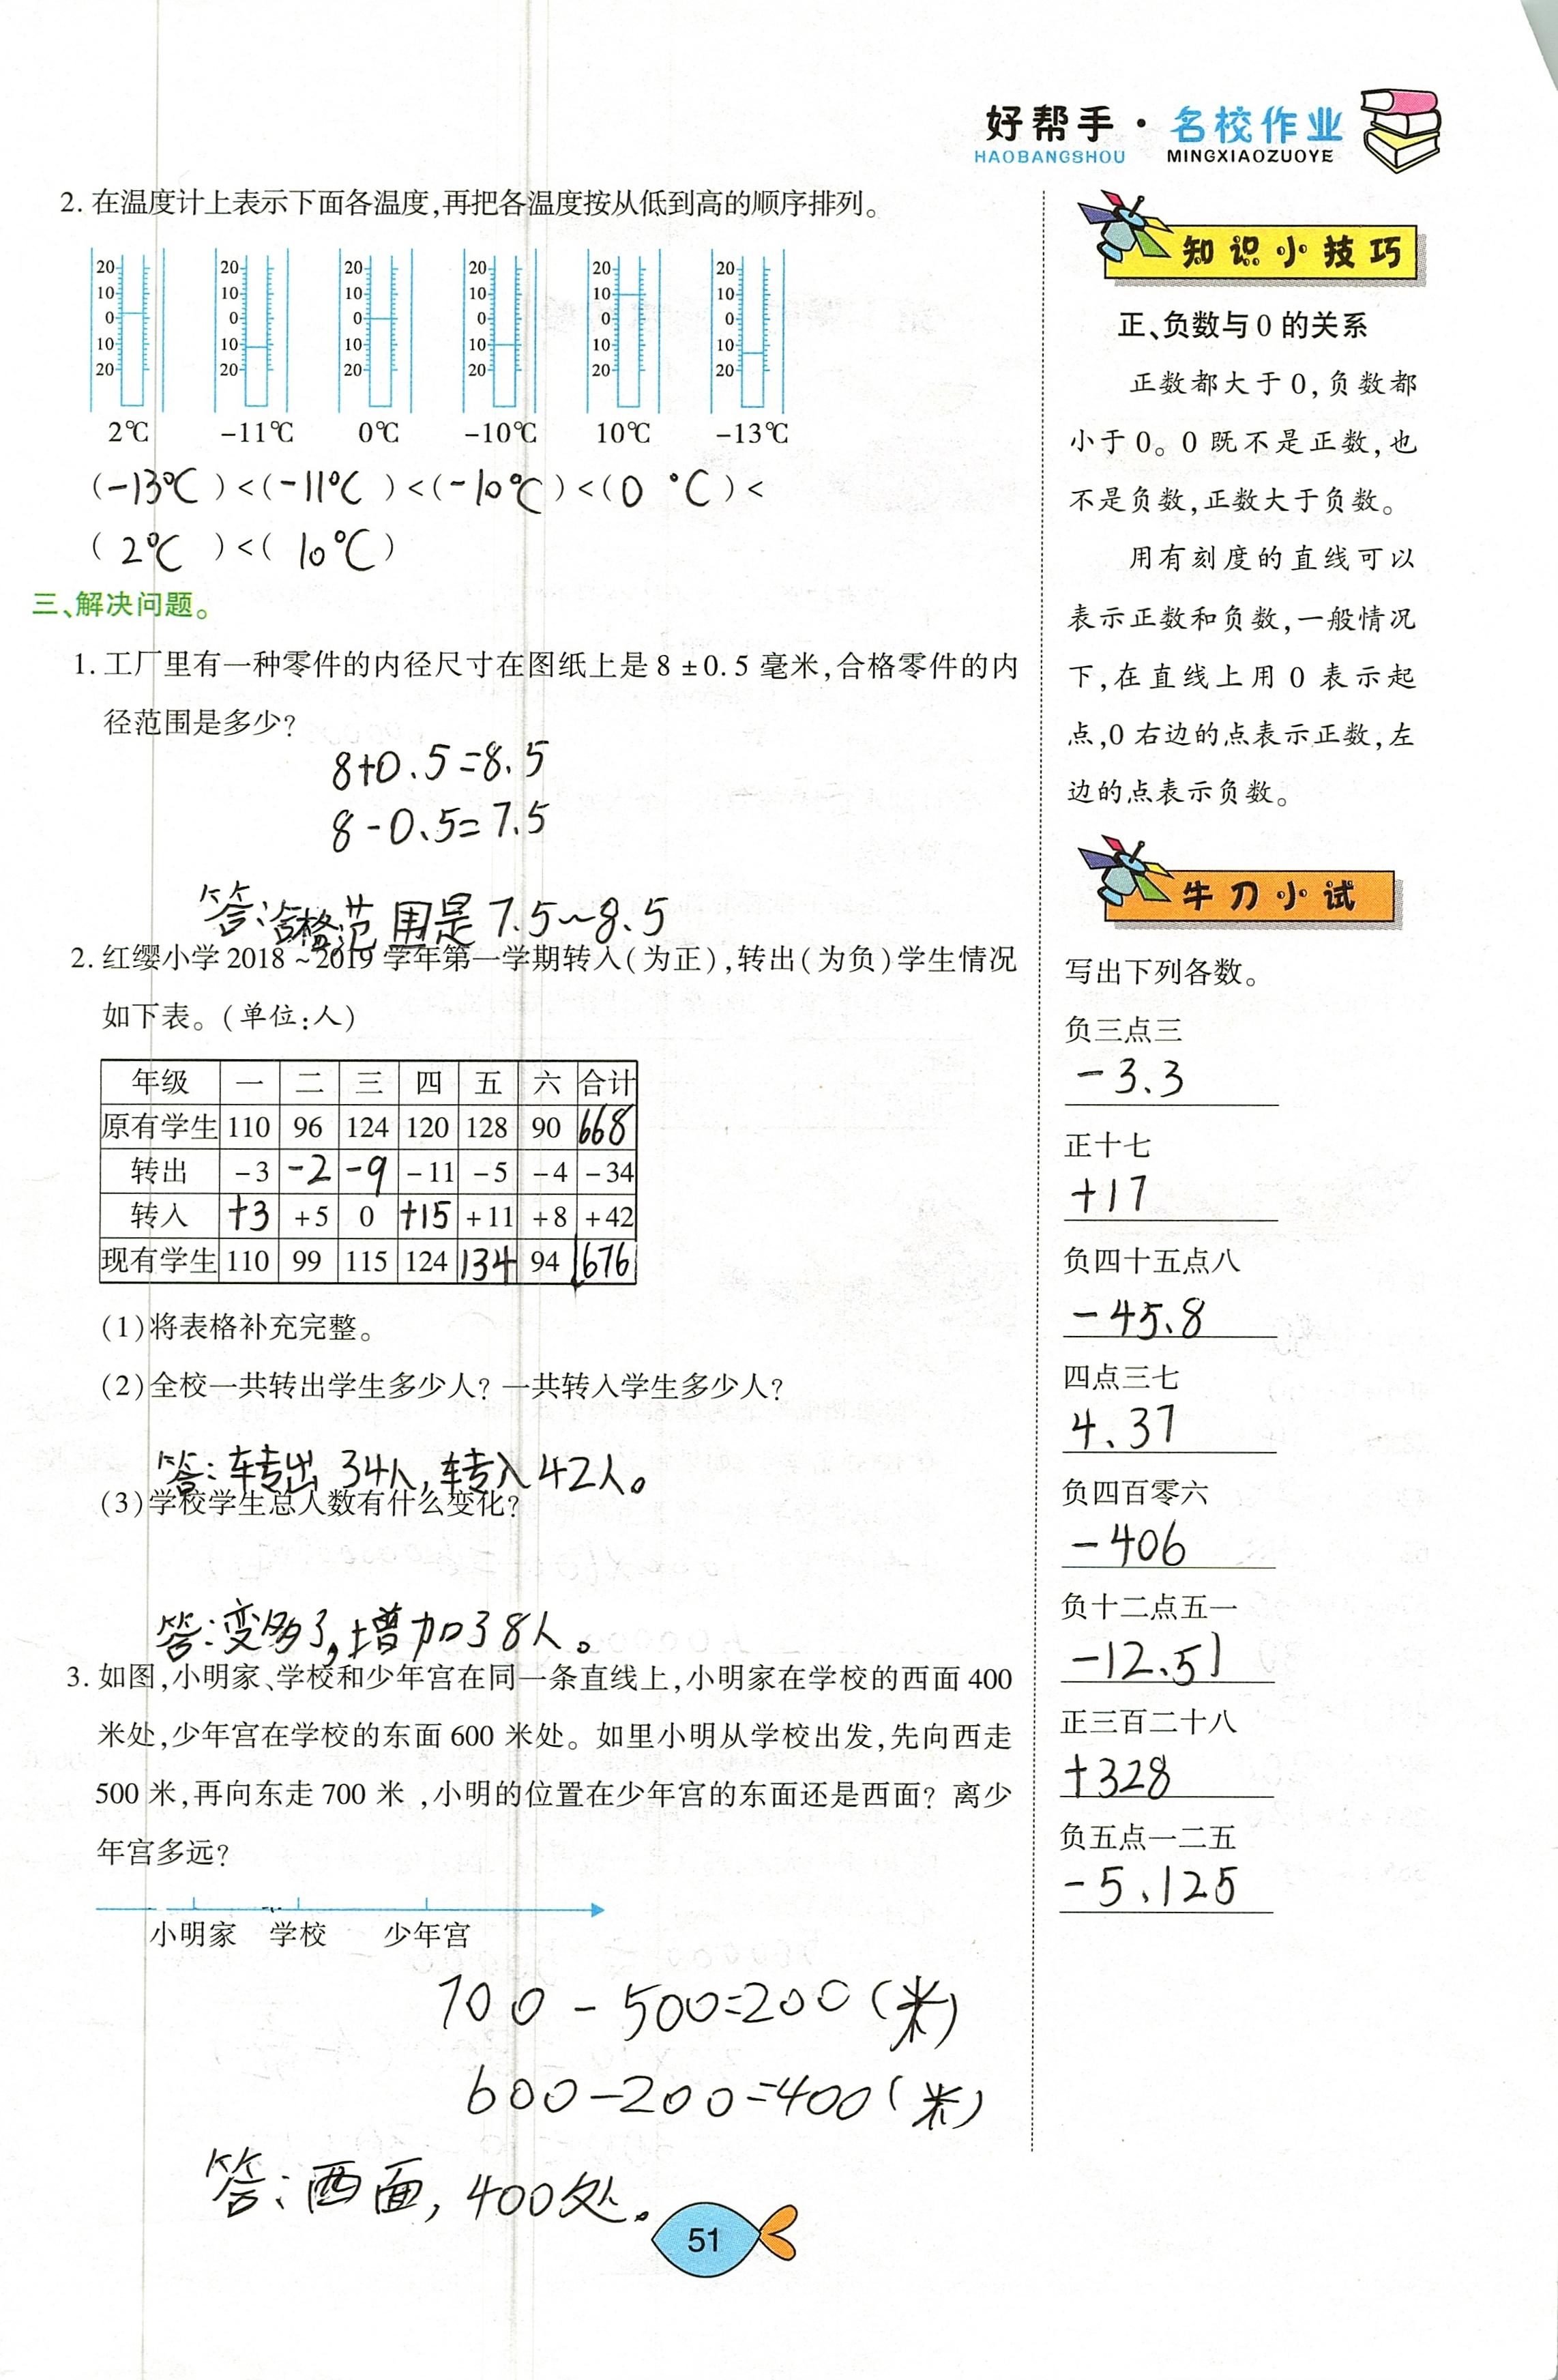 好帮手·名校作业
HAOBANGSHOU MINGXIAOZUOYE
2. 在温度计上表示下面各温度,再把各温度按从低到高的顺序排列。
20 20 20 20 20 20
10 10 10 10 10 10
0 0 0 0 0 0
10 10 10 10 10 10
20 20 20 20 20 20
2℃ -11℃ 0℃ -10℃ 10℃ -13℃
(-13℃)<(-11℃)<(-10℃)<(0 ℃)<
(2℃)<(10℃)
三、解决问题。
1. 工厂里有一种零件的内径尺寸在图纸上是 8 ±0.5 毫米,合格零件的内
径范围是多少?
8+0.5=8.5
8-0.5=7.5
答:合格范围是 7.5~8.5
2. 红缨小学 2018~2019 学年第一学期转入(为正),转出(为负)学生情况
如下表。(单位:人)
年级 一 二 三 四 五 六 合计
原有学生 110 96 124 120 128 90 668
转出 -3 -2 -9 -11 -5 -4 -34
转入 +3 +5 0 +15 +11 +8 +42
现有学生 110 99 115 124 134 94 676
(1)将表格补充完整。
(2)全校一共转出学生多少人? 一共转入学生多少人?
答:转出 34人,转入42人。
(3)学校学生总人数有什么变化?
答:变多了,增加38人。
3. 如图,小明家、学校和少年宫在同一条直线上,小明家在学校的西面 400
米处,少年宫在学校的东面 600 米处。如里小明从学校出发,先向西走
500 米,再向东走 700 米 ,小明的位置在少年宫的东面还是西面? 离少
年宫多远?
小明家 学校 少年宫
700-500=200(米)
600-200=400(米)
答:西面,400处。
51
知识小技巧
正、负数与 0 的关系
正数都大于 0,负数都
小于 0。0 既不是正数,也
不是负数,正数大于负数。
用有刻度的直线可以
表示正数和负数,一般情况
下,在直线上用 0 表示起
点,0 右边的点表示正数,左
边的点表示负数。
牛刀小试
写出下列各数。
负三点三
-3.3
正十七
+17
负四十五点八
-45.8
四点三七
4.37
负四百零六
-406
负十二点五一
-12.51
正三百二十八
+328
负五点一二五
-5.125